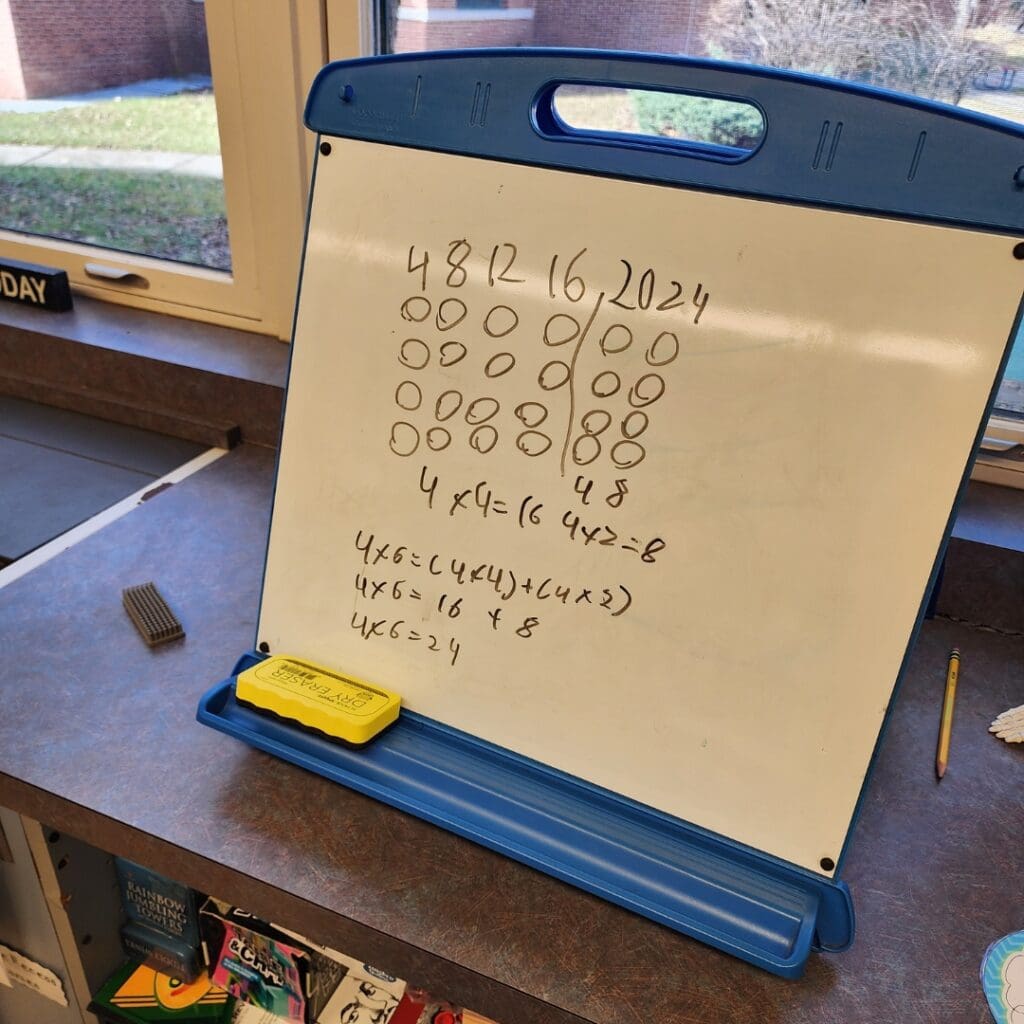 DAY
4 8 12 16 20 24
4 8
4 x 4 = 16 4 x 2 = 8
4 x 6 = (4 x 4) + (4 x 2)
4 x 6 = 16 + 8
4 x 6 = 24
DRY ERASER
RAINBOW
JUMBLING
TOWERS